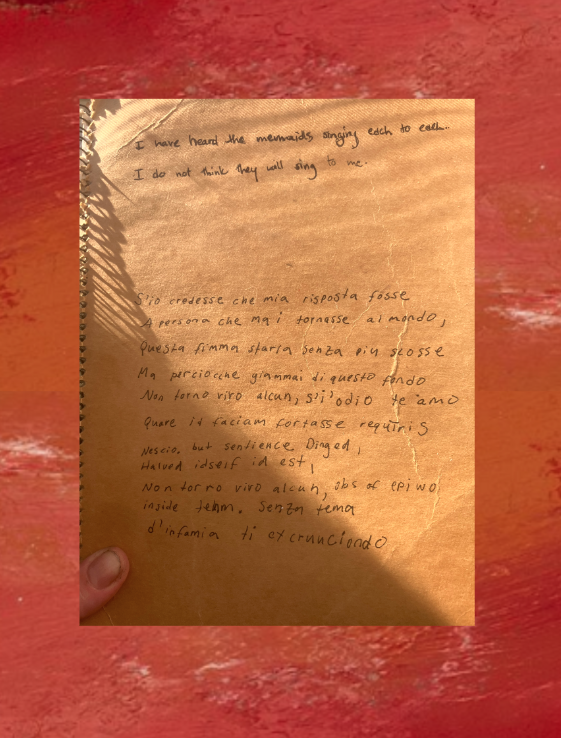 I have heard the mermaids singing each to each..
I do not think they will sing to me.
S'io credesse che mia risposta fosse
A persona che mai tornasse al mondo,
Questa fimma staria senza piu scosse
Ma perciocche giammai di questo fondo
Non torno vivo alcun, s'i'odio te amo
Quare id faciam fortasse requiris
Nescio. but sentience Dinged,
Halved idself id est,
Non torno vivo alcun, obs of epiwo
inside tehm. Senza tema
d'infamia ti excruuciondo